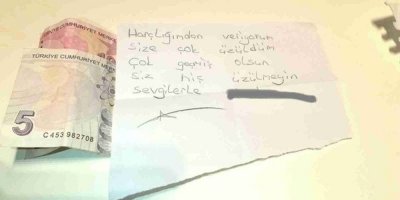 TÜRKİYE CUMHURİYET MER
TÜRKİYE CUMHURİYET MERK
5
C453 982708
Harçlığımdan veriyorum
Size çok üzüldüm
Çok geçmiş olsun
Siz hiç üzülmeyin
sevgilerle